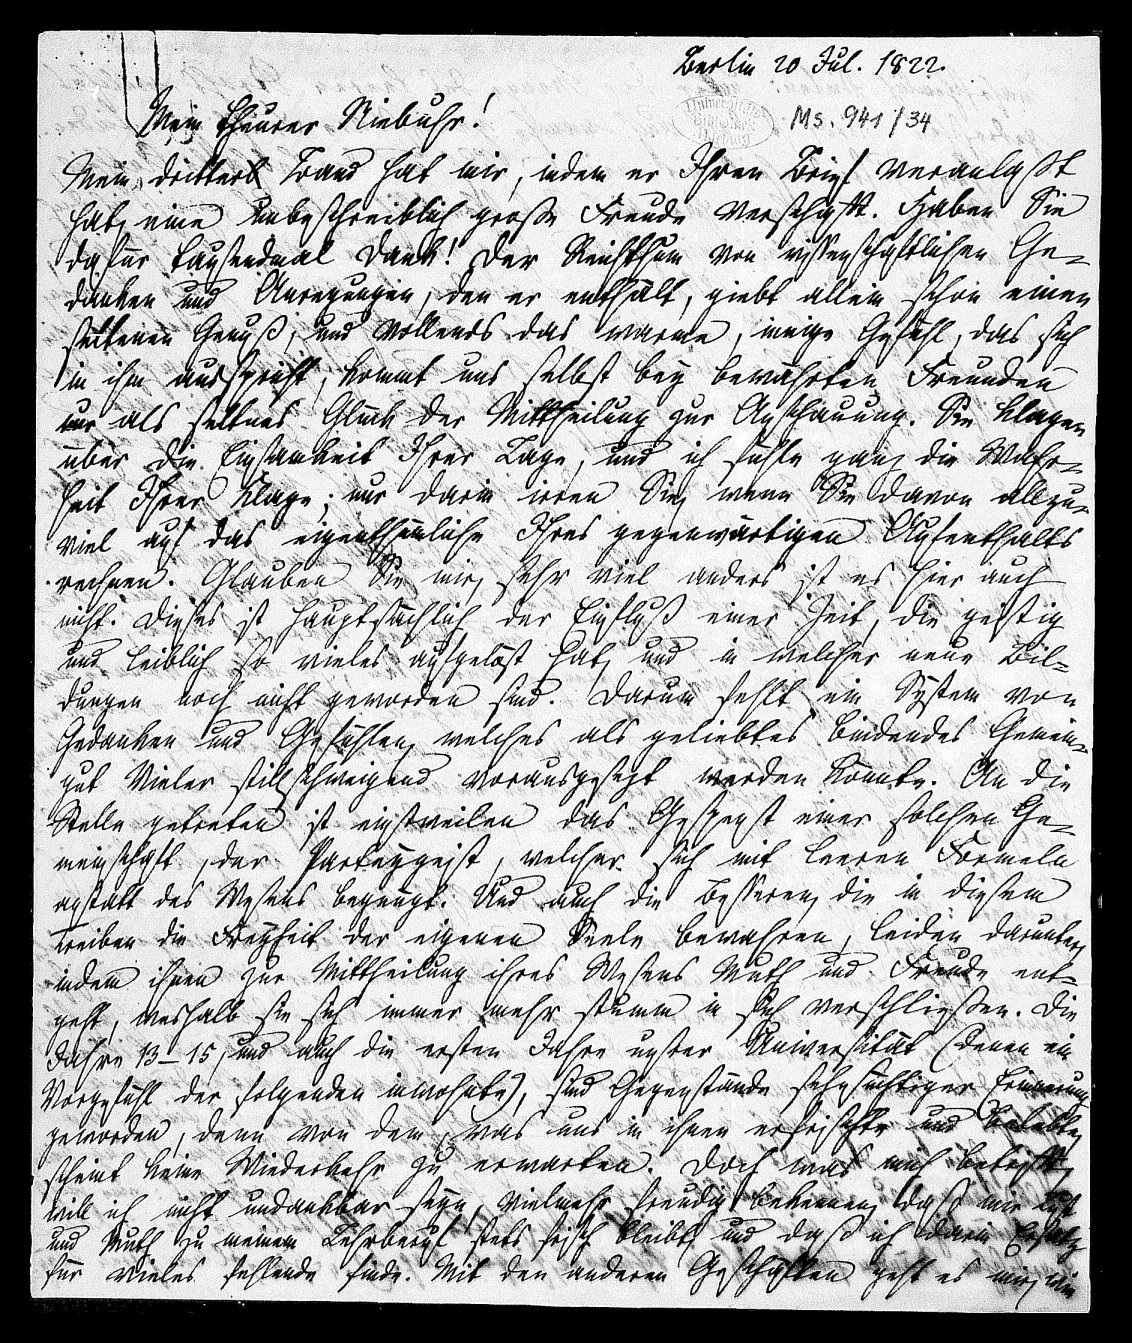 Berlin 20 Jul. 1822.
Ms. 941/34
Mein theurer Niebuhr!
Mein dritter Band hat mir, indem er Ihren Brief veranlaßt
hat, eine unbeschreiblich große Freude verschafft. Haben Sie
dafür tausendmal Dank! Der Reichthum von wissenschaftlichen Ge-
danken und Anregungen, den er enthält, giebt allein schon einen
seltenen Genuß, und vollends das warme, innige Gefühl, das sich
in ihm ausspricht, kommt uns selbst bey bewährten Freunden
nur als seltnes Glück der Mittheilung zur Anschauung. Sie klagen
über die Einsamkeit Ihrer Lage, und ich fühle ganz die Wahr-
heit Ihrer Klage; nur darin irren Sie, wenn Sie davon allzu-
viel auf das eigenthümliche Ihres gegenwärtigen Aufenthalts
rechnen. Glauben Sie mir, sehr viel anders ist es hier auch
nicht. Dieses ist hauptsächlich der Einfluß einer Zeit, die geistig
und leiblich so vieles aufgelöst hat, und in welcher neue Bil-
dungen noch nicht geworden sind. Darum fehlt ein System von
Gedanken und Gefühlen, welches als geliebtes bindendes Gemein-
gut Vieler stillschweigend vorausgesetzt werden könnte. An die
Stelle getreten ist einstweilen das Gespenst einer solchen Ge-
meinschaft, der Partheygeist, welcher sich mit leeren Formeln
anstatt des Wesens begnügt. Und auch die Besseren, die in diesem
treiben die Freyheit der eigenen Seele bewahren, leiden darunter,
indem ihnen zur Mittheilung ihres Wesens Muth und Freude ent-
geht, weshalb sie sich immer mehr stumm in sich verschließen. Die
Jahre 13–15, und auch die ersten Jahre unsrer Universität (denen ein
Vorgefühl der folgenden inwohnte), sind Gegenstände sehnsüchtiger Erinnerung
geworden, denn von dem, was uns in ihnen erfrischte und belebte,
scheint keine Wiederkehr zu erwarten. Doch was mich betrifft,
will ich nicht undankbar seyn, vielmehr freudig bekennen, daß mir Lust
und Muth zu meinem Lehrberuf stets frisch bleibt, und daß ich darin Ersatz
für vieles fehlende finde. Mit den anderen Geschäften geht es mir, wie